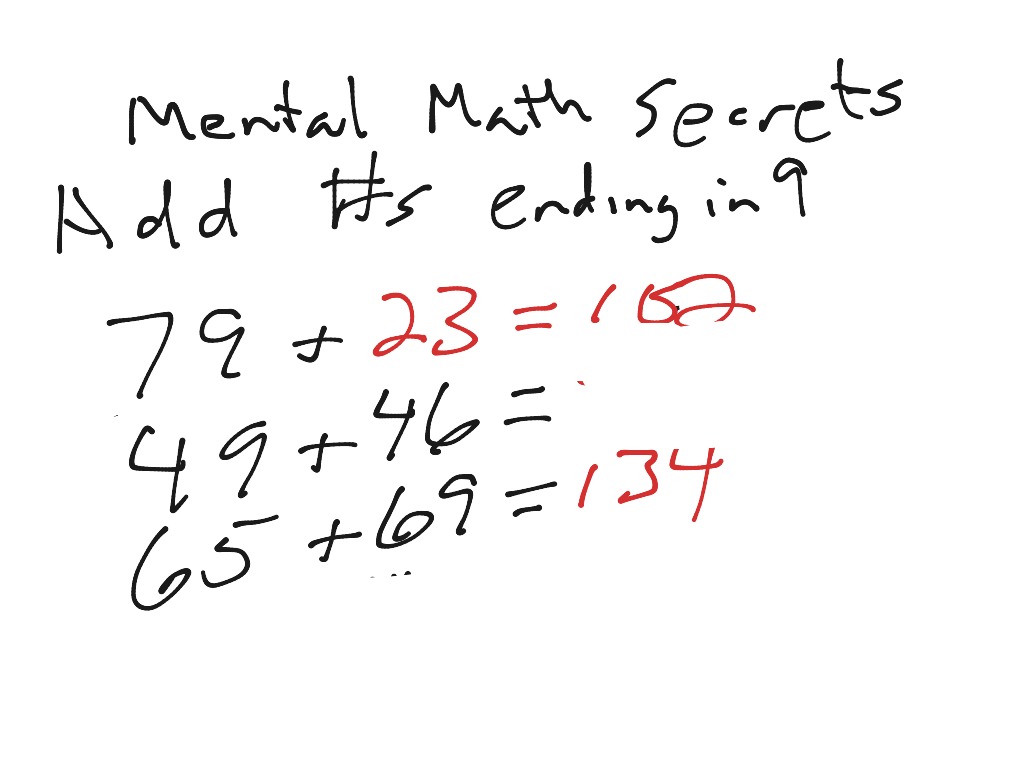 Mental Math Secrets
Add #s ending in 9
79 + 23 = 102
49 + 46 =
65 + 69 = 134